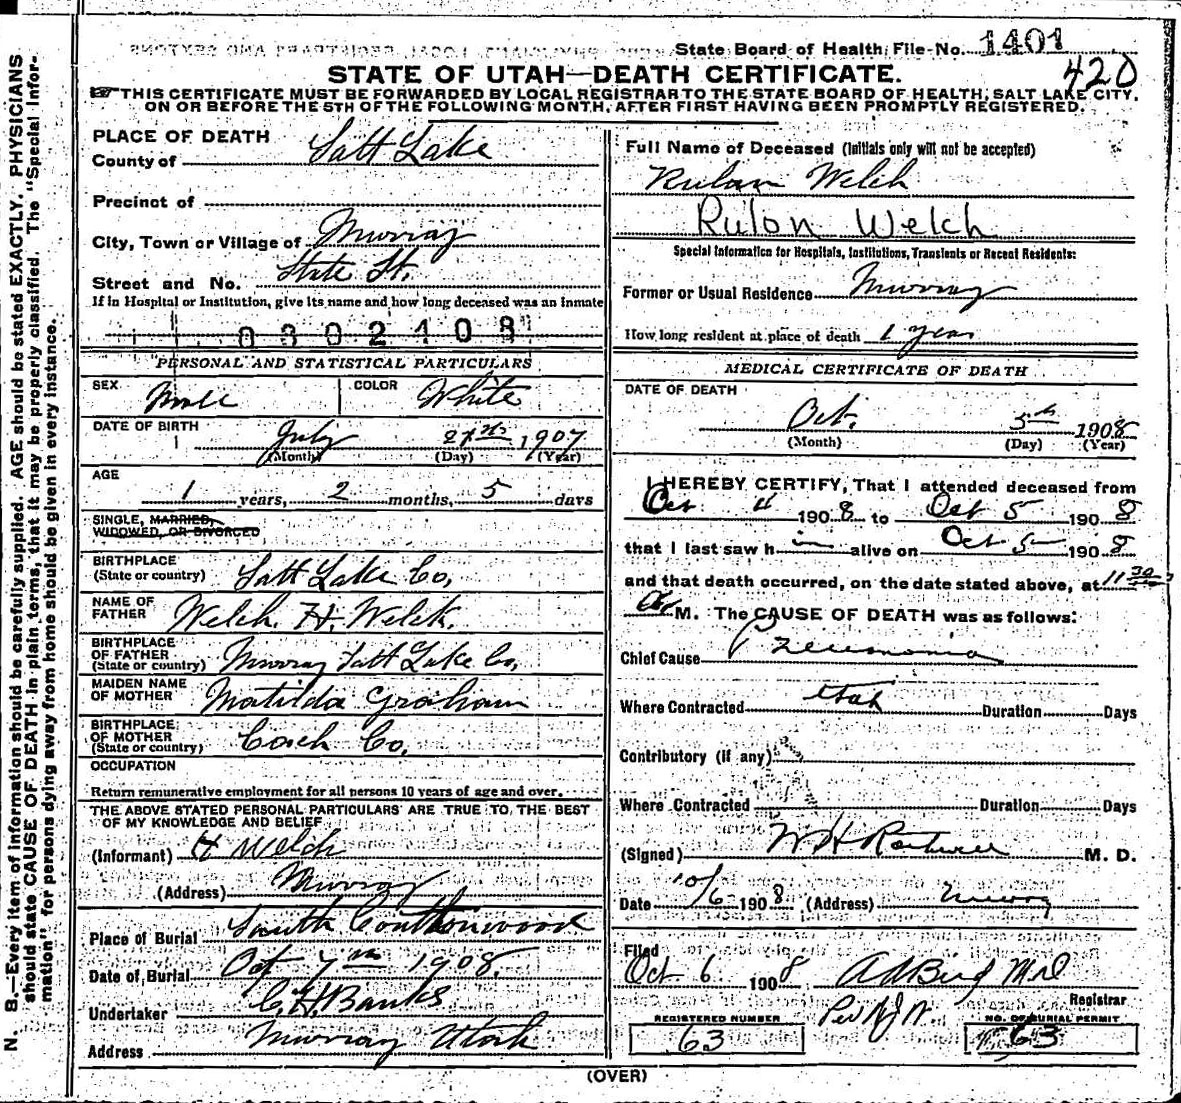 State Board of Health File No. 1401
420
STATE OF UTAH—DEATH CERTIFICATE.
THIS CERTIFICATE MUST BE FORWARDED BY LOCAL REGISTRAR TO THE STATE BOARD OF HEALTH, SALT LAKE CITY,
ON OR BEFORE THE 5TH OF THE FOLLOWING MONTH, AFTER FIRST HAVING BEEN PROMPTLY REGISTERED.
PLACE OF DEATH
County of Salt Lake
Precinct of
City, Town or Village of Murray
Street and No. State St.
If in Hospital or Institution, give its name and how long deceased was an inmate
0302408
PERSONAL AND STATISTICAL PARTICULARS
SEX Male COLOR White
DATE OF BIRTH July 1907
(Month) (Day) (Year)
AGE
1 years, 2 months, 5 days
SINGLE, MARRIED,
WIDOWED, OR DIVORCED
BIRTHPLACE
(State or country) Salt Lake Co.
NAME OF
FATHER Welch. H. Welch.
BIRTHPLACE
OF FATHER
(State or country) Murray Salt Lake Co,
MAIDEN NAME
OF MOTHER Matilda Graham
BIRTHPLACE
OF MOTHER
(State or country) Cach Co,
OCCUPATION
Return remunerative employment for all persons 10 years of age and over.
THE ABOVE STATED PERSONAL PARTICULARS ARE TRUE TO THE BEST
OF MY KNOWLEDGE AND BELIEF
(Informant) H Welch
(Address) Murray
Place of Burial South Cottonwood
Date of Burial Oct 7th 1908.
Undertaker C. H. Banks
Address Murray Utah
Full Name of Deceased (Initials only will not be accepted)
Rulon Welch
Rulon Welch
Special Information for Hospitals, Institutions, Transients or Recent Residents:
Former or Usual Residence Murray
How long resident at place of death 1 year
MEDICAL CERTIFICATE OF DEATH
DATE OF DEATH
Oct. 5th 1908
(Month) (Day) (Year)
I HEREBY CERTIFY, That I attended deceased from
Oct 4 1908 to Oct 5 1908
that I last saw him alive on Oct 5 1908
and that death occurred, on the date stated above, at 11 30
M. The CAUSE OF DEATH was as follows:
Chief Cause Pneumonia
Where Contracted Utah Duration Days
Contributory (if any)
Where Contracted Duration Days
(Signed) W H M. D.
Date 10/6 1908 (Address) Murray
Filed
Oct 6 1908 Registrar
REGISTERED NUMBER
63
NO. OF BURIAL PERMIT
63
(OVER)
N. B.—Every item of information should be carefully supplied. AGE should be stated EXACTLY. PHYSICIANS
should state CAUSE OF DEATH in plain terms, that it may be properly classified. The "Special Infor-
mation" for persons dying away from home should be given in every instance.